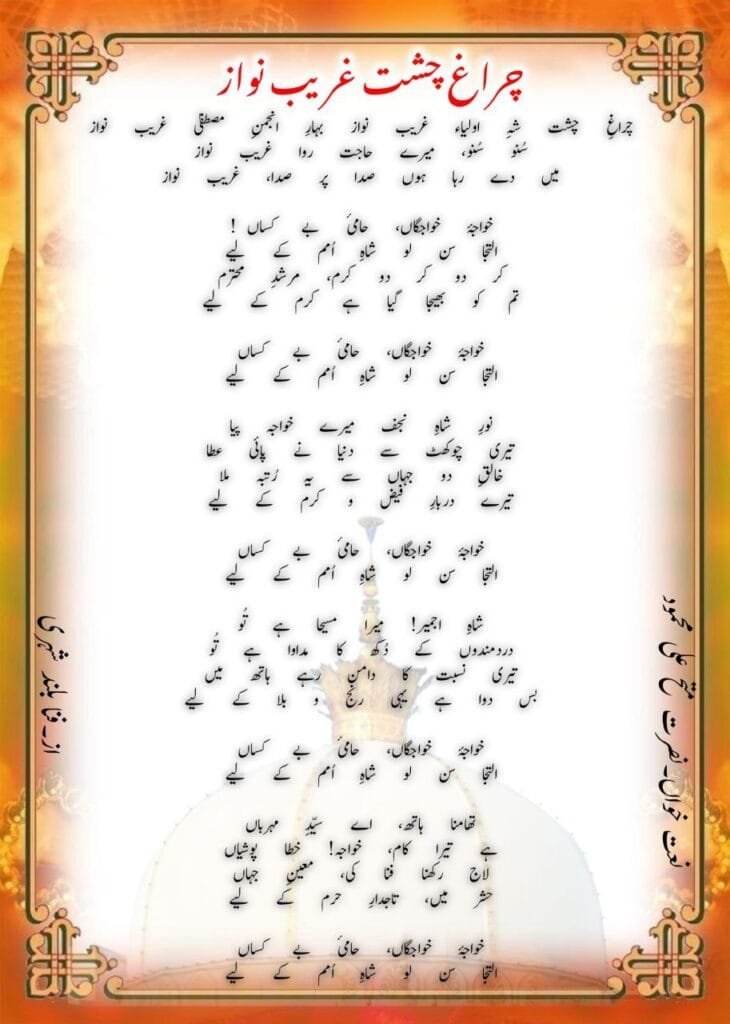 چراغِ چشت غریب نواز
چراغِ چشت شہِ اولیاء غریب نواز بہارِ انجمنِ مصطفٰی غریب نواز
سُنو سُنو، میرے حاجت روا غریب نواز
میں دے رہا ہوں صدا پر صدا، غریب نواز
خواجۂ خواجگاں، حامیٔ بے کساں !
التجا سن لو شاہِ اُمم کے لیے
کر دو کر دو کرم، مرشدِ محترم
تم کو بھیجا گیا ہے کرم کے لیے
خواجۂ خواجگاں، حامیٔ بے کساں
التجا سن لو شاہِ اُمم کے لیے
نورِ شاہِ نجف میرے خواجہ پیا
تیری چوکھٹ سے دنیا نے پائی عطا
خالقِ دو جہاں سے یہ رُتبہ ملا
تیرے دربارِ فیض و کرم کے لیے
خواجۂ خواجگاں، حامیٔ بے کساں
التجا سن لو شاہِ اُمم کے لیے
شاہِ اجمیر! میرا مسیحا ہے تُو
دردمندوں کے دُکھ کا مداوا ہے تُو
تیری نسبت کا دامن رہے ہاتھ میں
بس دوا ہے یہی رنج و بلا کے لیے
خواجۂ خواجگاں، حامیٔ بے کساں
التجا سن لو شاہِ اُمم کے لیے
تھامنا ہاتھ، اے سیّدِ مہرباں
ہے تیرا کام، خواجہ! خطا پوشیاں
لاج رکھنا فنا کی، معینِ جہاں
حشر میں، تاجدارِ حرم کے لیے
خواجۂ خواجگاں، حامیٔ بے کساں
التجا سن لو شاہِ اُمم کے لیے
نعت خواں۔نصرت فتح علی محمود
از۔فنا بلند شہری